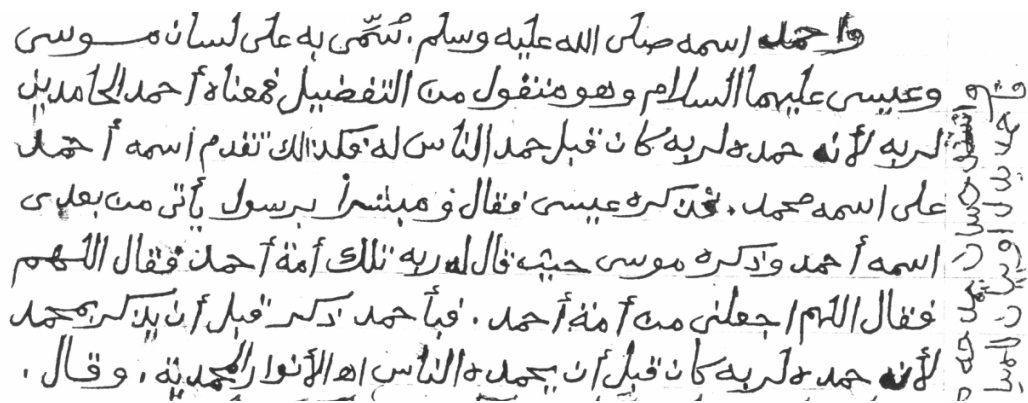 واحمد اسمه صلى الله عليه وسلم. سُمِّى به على لسان موسى
وعيسى عليهما السلام وهو منقول من التفضيل فمعناه أحمد الحامدين
لربه لأنه حمده لربه كان قبل حمد الناس له فكذالك تقدم اسمه أحمد
على اسمه محمد. فذكره عيسى فقال ومبشرا برسول يأتى من بعدى
اسمه أحمد وذكره موسى حيث قال له ربه تلك أمة أحمد فقال اللهم
فقال اللهم اجعلنى من أمة أحمد. فبأحمد ذكر قبل أن يذكر بمحمد
لأنه حمده لربه كان قبل أن يحمده الناس اهـ الأنوار المحمدية. وقال.